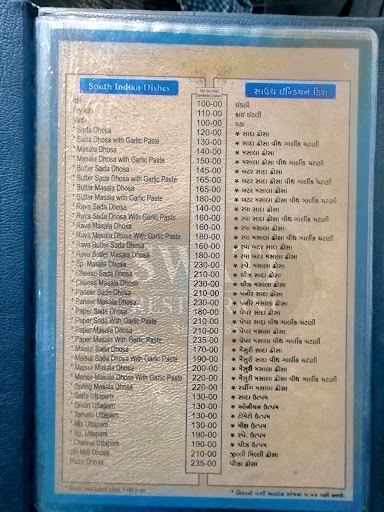 South Indian Dishes સાઉથ ઈન્ડિયન ડિશ
Idli 100-00 ઈડલી
Fry Idly 110-00 ફ્રાઈ ઈડલી
Vada 100-00 વડા
* Sada Dhosa 120-00 * સાદા ઢોસા
* Sada Dhosa with Garlic Paste 130-00 * સાદા ઢોસા વીથ ગાર્લીક ચટણી
* Masala Dhosa 140-00 * મસાલા ઢોસા
* Masala Dhosa with Garlic Paste 150-00 * મસાલા ઢોસા વીથ ગાર્લીક ચટણી
* Butter Sada Dhosa 145-00 * બટર સાદા ઢોસા
* Butter Sada Dhosa with Garlic Paste 165-00 * બટર સાદા ઢોસા વીથ ગાર્લીક ચટણી
* Butter Masala Dhosa 165-00 * બટર મસાલા ઢોસા
* Butter Masala Dhosa with Garlic Paste 180-00 * બટર મસાલા ઢોસા વીથ ગાર્લીક ચટણી
* Rava Sada Dhosa 140-00 * રવા સાદા ઢોસા
* Rava Sada Dhosa With Garlic Paste 160-00 * રવા સાદા ઢોસા વીથ ગાર્લીક ચટણી
* Rava Masala Dhosa 160-00 * રવા મસાલા ઢોસા
* Rava Masala Dhosa With Garlic Paste 180-00 * રવા મસાલા ઢોસા વીથ ગાર્લીક ચટણી
* Rava Butter Sada Dhosa 160-00 * રવા બટર સાદા ઢોસા
* Rava Butter Masala Dhosa 180-00 * રવા બટર મસાલા ઢોસા
* Sp. Masala Dhosa 230-00 * સ્પે. મસાલા ઢોસા
* Cheese Sada Dhosa 210-00 * ચીઝ સાદા ઢોસા
* Cheese Masala Dhosa 230-00 * ચીઝ મસાલા ઢોસા
* Paneer Sada Dhosa 210-00 * પનીર સાદા ઢોસા
* Paneer Masala Dhosa 230-00 * પનીર મસાલા ઢોસા
* Paper Sada Dhosa 180-00 * પેપર સાદા ઢોસા
* Paper Sada With Garlic Paste 210-00 * પેપર સાદા ઢોસા વીથ ગાર્લીક ચટણી
* Paper Masala Dhosa 210-00 * પેપર મસાલા ઢોસા
* Paper Masala With Garlic Paste 235-00 * પેપર મસાલા ઢોસા વીથ ગાર્લીક ચટણી
* Maisur Sada Dhosa 170-00 * મૈસુરી સાદા ઢોસા
* Maisur Sada Dhosa With Garlic Paste 190-00 * મૈસુરી સાદા ઢોસા વીથ ગાર્લીક ચટણી
* Maisur Masala Dhosa 200-00 * મૈસુરી મસાલા ઢોસા
* Maisur Masala Dhosa With Garlic Paste 220-00 * મૈસુરી મસાલા ઢોસા વીથ ગાર્લીક ચટણી
* Spring Masala Dhosa 220-00 * સ્પ્રીંગ મસાલા ઢોસા
* Sada Uttapam 130-00 * સાદા ઉત્તપમ
* Onion Uttapam 130-00 * ઓનીયન ઉત્તપમ
* Tomato Uttapam 130-00 * ટોમેટો ઉત્તપમ
* Mix Uttapam 130-00 * મીક્ષ ઉત્તપમ
* Sp. Uttapam 190-00 * સ્પે. ઉત્તપમ
* Cheese Uttapam 190-00 * ચીઝ ઉત્તપમ
Jin Mili Dhosa 210-00 જીની મિલી ઢોસા
Pizza Dhosa 235-00 પીઝા ઢોસા
* નિશાની વાળી આઇટમ સાંજના ૫-૦૦ પછી મળશે.